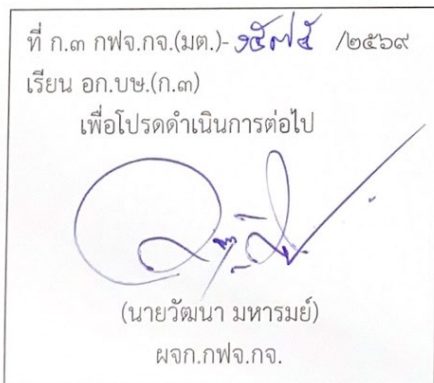 ที่ ก.๓ กฟจ.กจ.(มต.)- ๑๕๗๕ /๒๕๖๙
เรียน อก.บษ.(ก.๓)
เพื่อโปรดดำเนินการต่อไป
(นายวัฒนา มหารมย์)
ผจก.กฟจ.กจ.